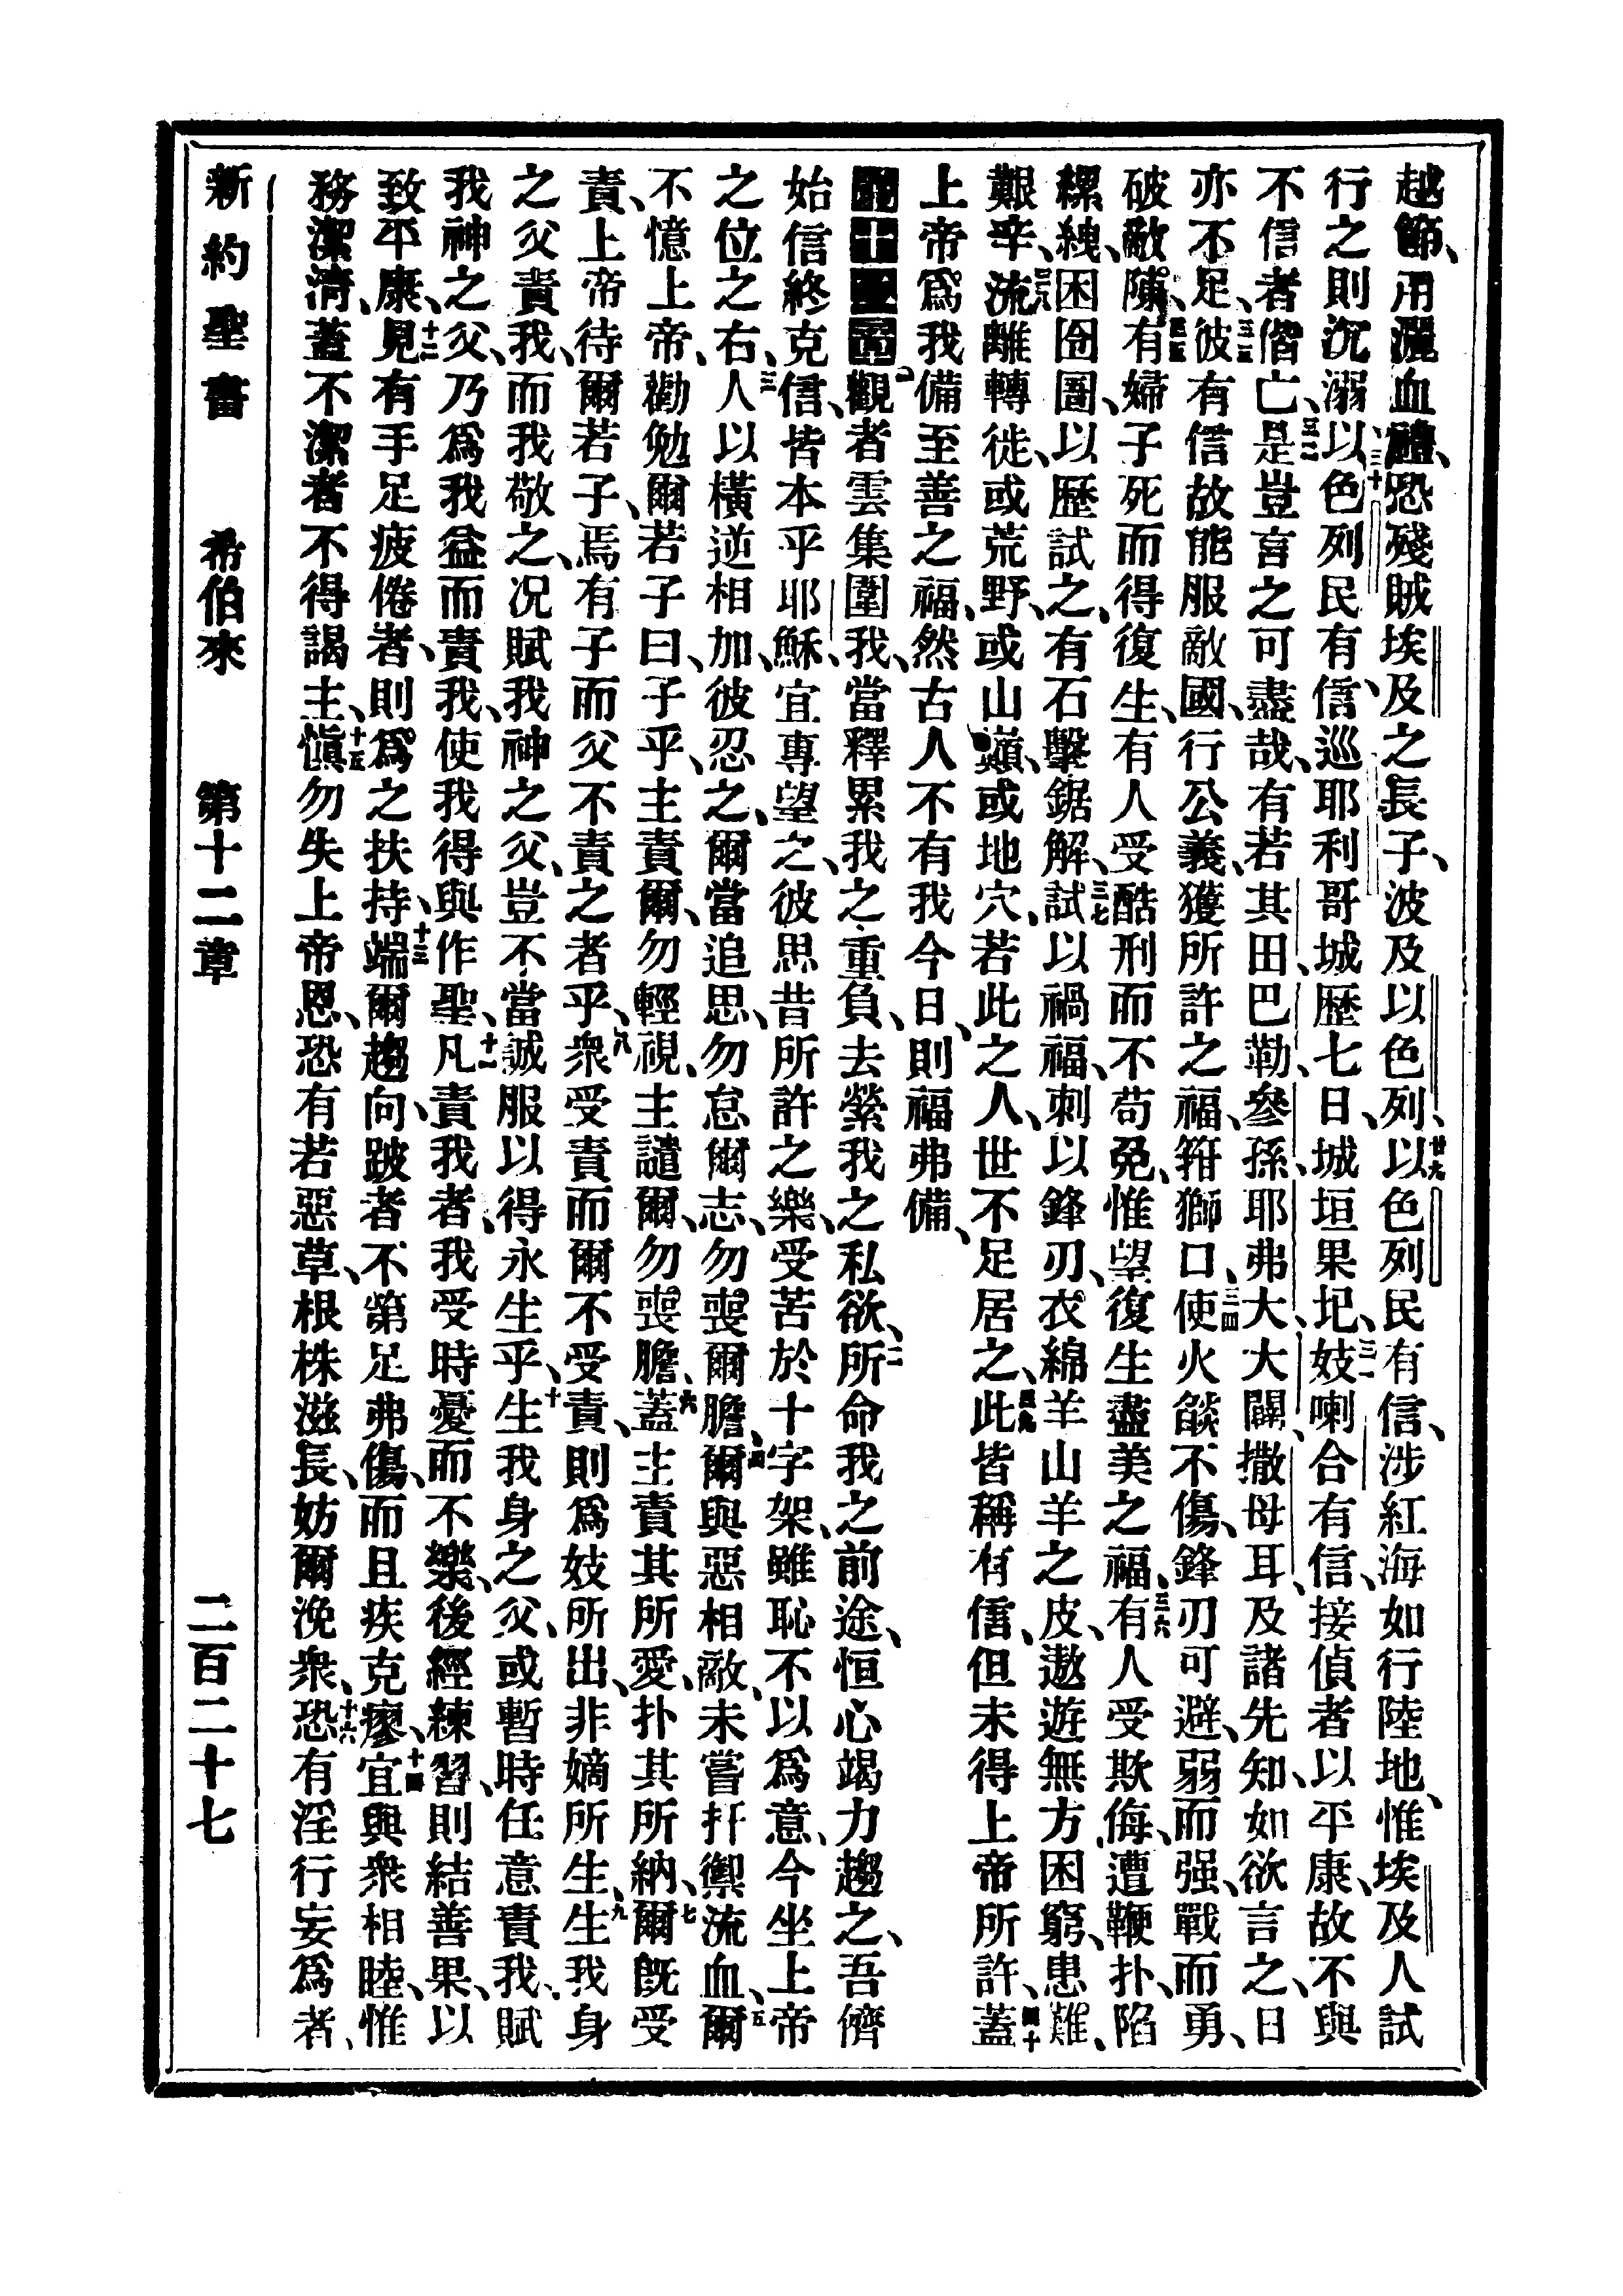 越節、用灑血禮、恐殘賊埃及之長子、波及以色列、廿九以色列民有信、涉紅海如行陸地、惟埃及人試
行之則沉溺、三十以色列民有信、巡耶利哥城、歷七日、城垣果圮、三一妓喇合有信、接偵者以平康、故不與
不信者偕亡、三二是豈言之可盡哉、有若其田、巴勒、參孫、耶弗大、大闢、撒母耳、及諸先知、如欲言之、日
亦不足、三三彼有信故能服敵國、行公義、獲所許之福、箝獅口、三四使火燄不傷、鋒刃可避、弱而强、戰而勇、
破敵陳、三五有婦子死而得復生、有人受酷刑而不苟免、惟望復生盡美之福、三六有人受欺侮、遭鞭扑、陷
縲絏、困囹圄、以歷試之、三七有石擊、鋸解、試以禍福、刺以鋒刃、衣綿羊山羊之皮、遨遊無方、困窮、患難、
艱辛、三八流離轉徙、或荒野、或山巔、或地穴、若此之人、世不足居之、三九此皆稱有信、但未得上帝所許、四十蓋
上帝爲我備至善之福、然古人不有我今日、則福弗備、
第十二章一觀者雲集圍我、當釋累我之重負、去縈我之私欲、二所命我之前途、恒心竭力趨之、吾儕
始信終克信、皆本乎耶穌、宜專望之、彼思昔所許之樂、受苦於十字架、雖恥不以爲意、今坐上帝
之位之右、三人以橫逆相加、彼忍之、爾當追思、勿怠爾志、勿喪爾膽、四爾與惡相敵、未嘗扞禦流血、五爾
不憶上帝、勸勉爾若子曰、子乎、主責爾、勿輕視、主譴爾、勿喪膽、六蓋主責其所愛、扑其所納、七爾旣受
責、上帝待爾若子、焉有子而父不責之者乎、八衆受責而爾不受責、則爲妓所出、非嫡所生、九生我身
之父責我、而我敬之、況賦我神之父、豈不當誠服以得永生乎、十生我身之父、或暫時任意責我、賦
我神之父、乃爲我益而責我、使我得與作聖、十一凡責我者、我受時憂而不樂、後經練習、則結善果、以
致平康、十二見有手足疲倦者、則爲之扶持、十三端爾趨向、跛者不第足弗傷、而且疾克瘳、十四宜與衆相睦、惟
務潔淸、蓋不潔者不得謁主、十五愼勿失上帝恩、恐有若惡草、根株滋長、妨爾浼衆、十六恐有淫行妄爲者、
新約聖書 希伯來 第十二章 二百二十七